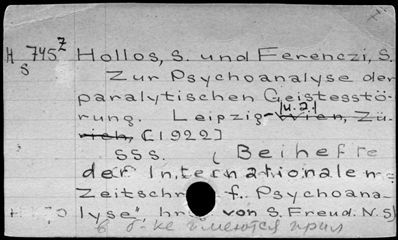 H 745 z Hollos, S. und Ferenczi, S.
S
Zur Psychoanalyse der
paralytischen Geistesstö-
rung. Leipzig- Wien, Zü- [u.a.]
rich, [1922]
SSS. (Beihefte
der Internationalen
Zeitschr f. Psychoana-
lyse", hrg. von S. Freud. N.5)
в б-ке имеются прил